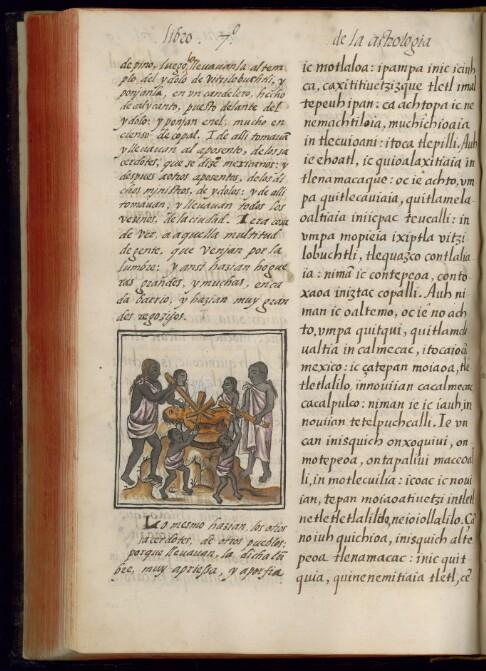 libro . 7º
de la astrologia
de pino, luego lleuauanla al tem-
plo. del ydolo de Vitzilobuchtli, y
ponjanla, en vn candelero, hecho
de cal y canto, puesto delante del
ydolo: y ponjan enel: mucho en-
cienso de copal. I de alli tomauã
y lleuauan al aposento, de los sa
cerdotes, que se dizẽ mexicanos: y
despues a otros aposentos, de los di-
chos ministros, de ydolos: y de alli
tomauan, y lleuauan todos los
vezinos, de la ciudad. I era cosa
de ver, a aquella multitud
de gente, que venjan por la
lumbre: y ansi hazian hogue
ras grandes, y muchas, en ca
da barrio, y hazian muy gran
des regozijos.
Lo mesmo hazian, los otros
sacerdotes, de otros pueblos:
porque lleuauan, la dicha lũ-
bre, muy apriessa, y aporfia
ic motlaloa: ipampa inic iciuh
ca, caxititiuetzizque tletl imal
tepeuh ipan: ca achtopa ic ne
nemachtiloia, muchichioaia
in tlecuioani: itoca tlepilli, Auh
ie ehoatl, ic quioalaxitiaia in
tlenamacaque: oc ie achto, vm
pa quitlecauiaia, quitlamela
oaltiaia iniicpac teucalli: in
vmpa mopieia ixiptla vitzi
lobuchtli, tlequazco contlalia
ia: nimã ic contepeoa, conto
xaoa iniztac copalli. Auh ni
man ic oaltemo, oc ie no ach
to, vmpa quitqui, quitlamela
ualtia in calmecac, itocaiocã
mexico: ic çatepan moiaoa, tle
tletlalilo, innouiian cacalmecac
cacalpulco: niman ie ic iauh, in
nouiian tetelpuchcalli. Ie vn
can inisquich onxoquiui, on
motepeoa, ontapaliui maceoa
li, in motlecuilia: icoac ic noui
ian, tepan moiaoatiuetzi in tletl
netletletlalilo, neioiollalilo. Ca
no iuh quichioa, inisquich alte
peoa tlenamacac: inic quit
quia, quinenemitiaia tletl, cẽ